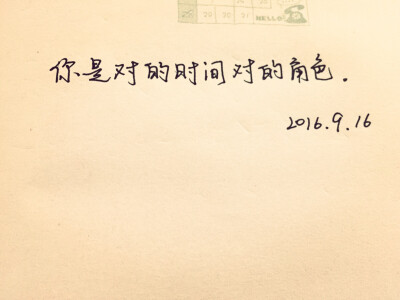 25 26 27
HELLO
你是对的时间对的角色.
2016.9.16